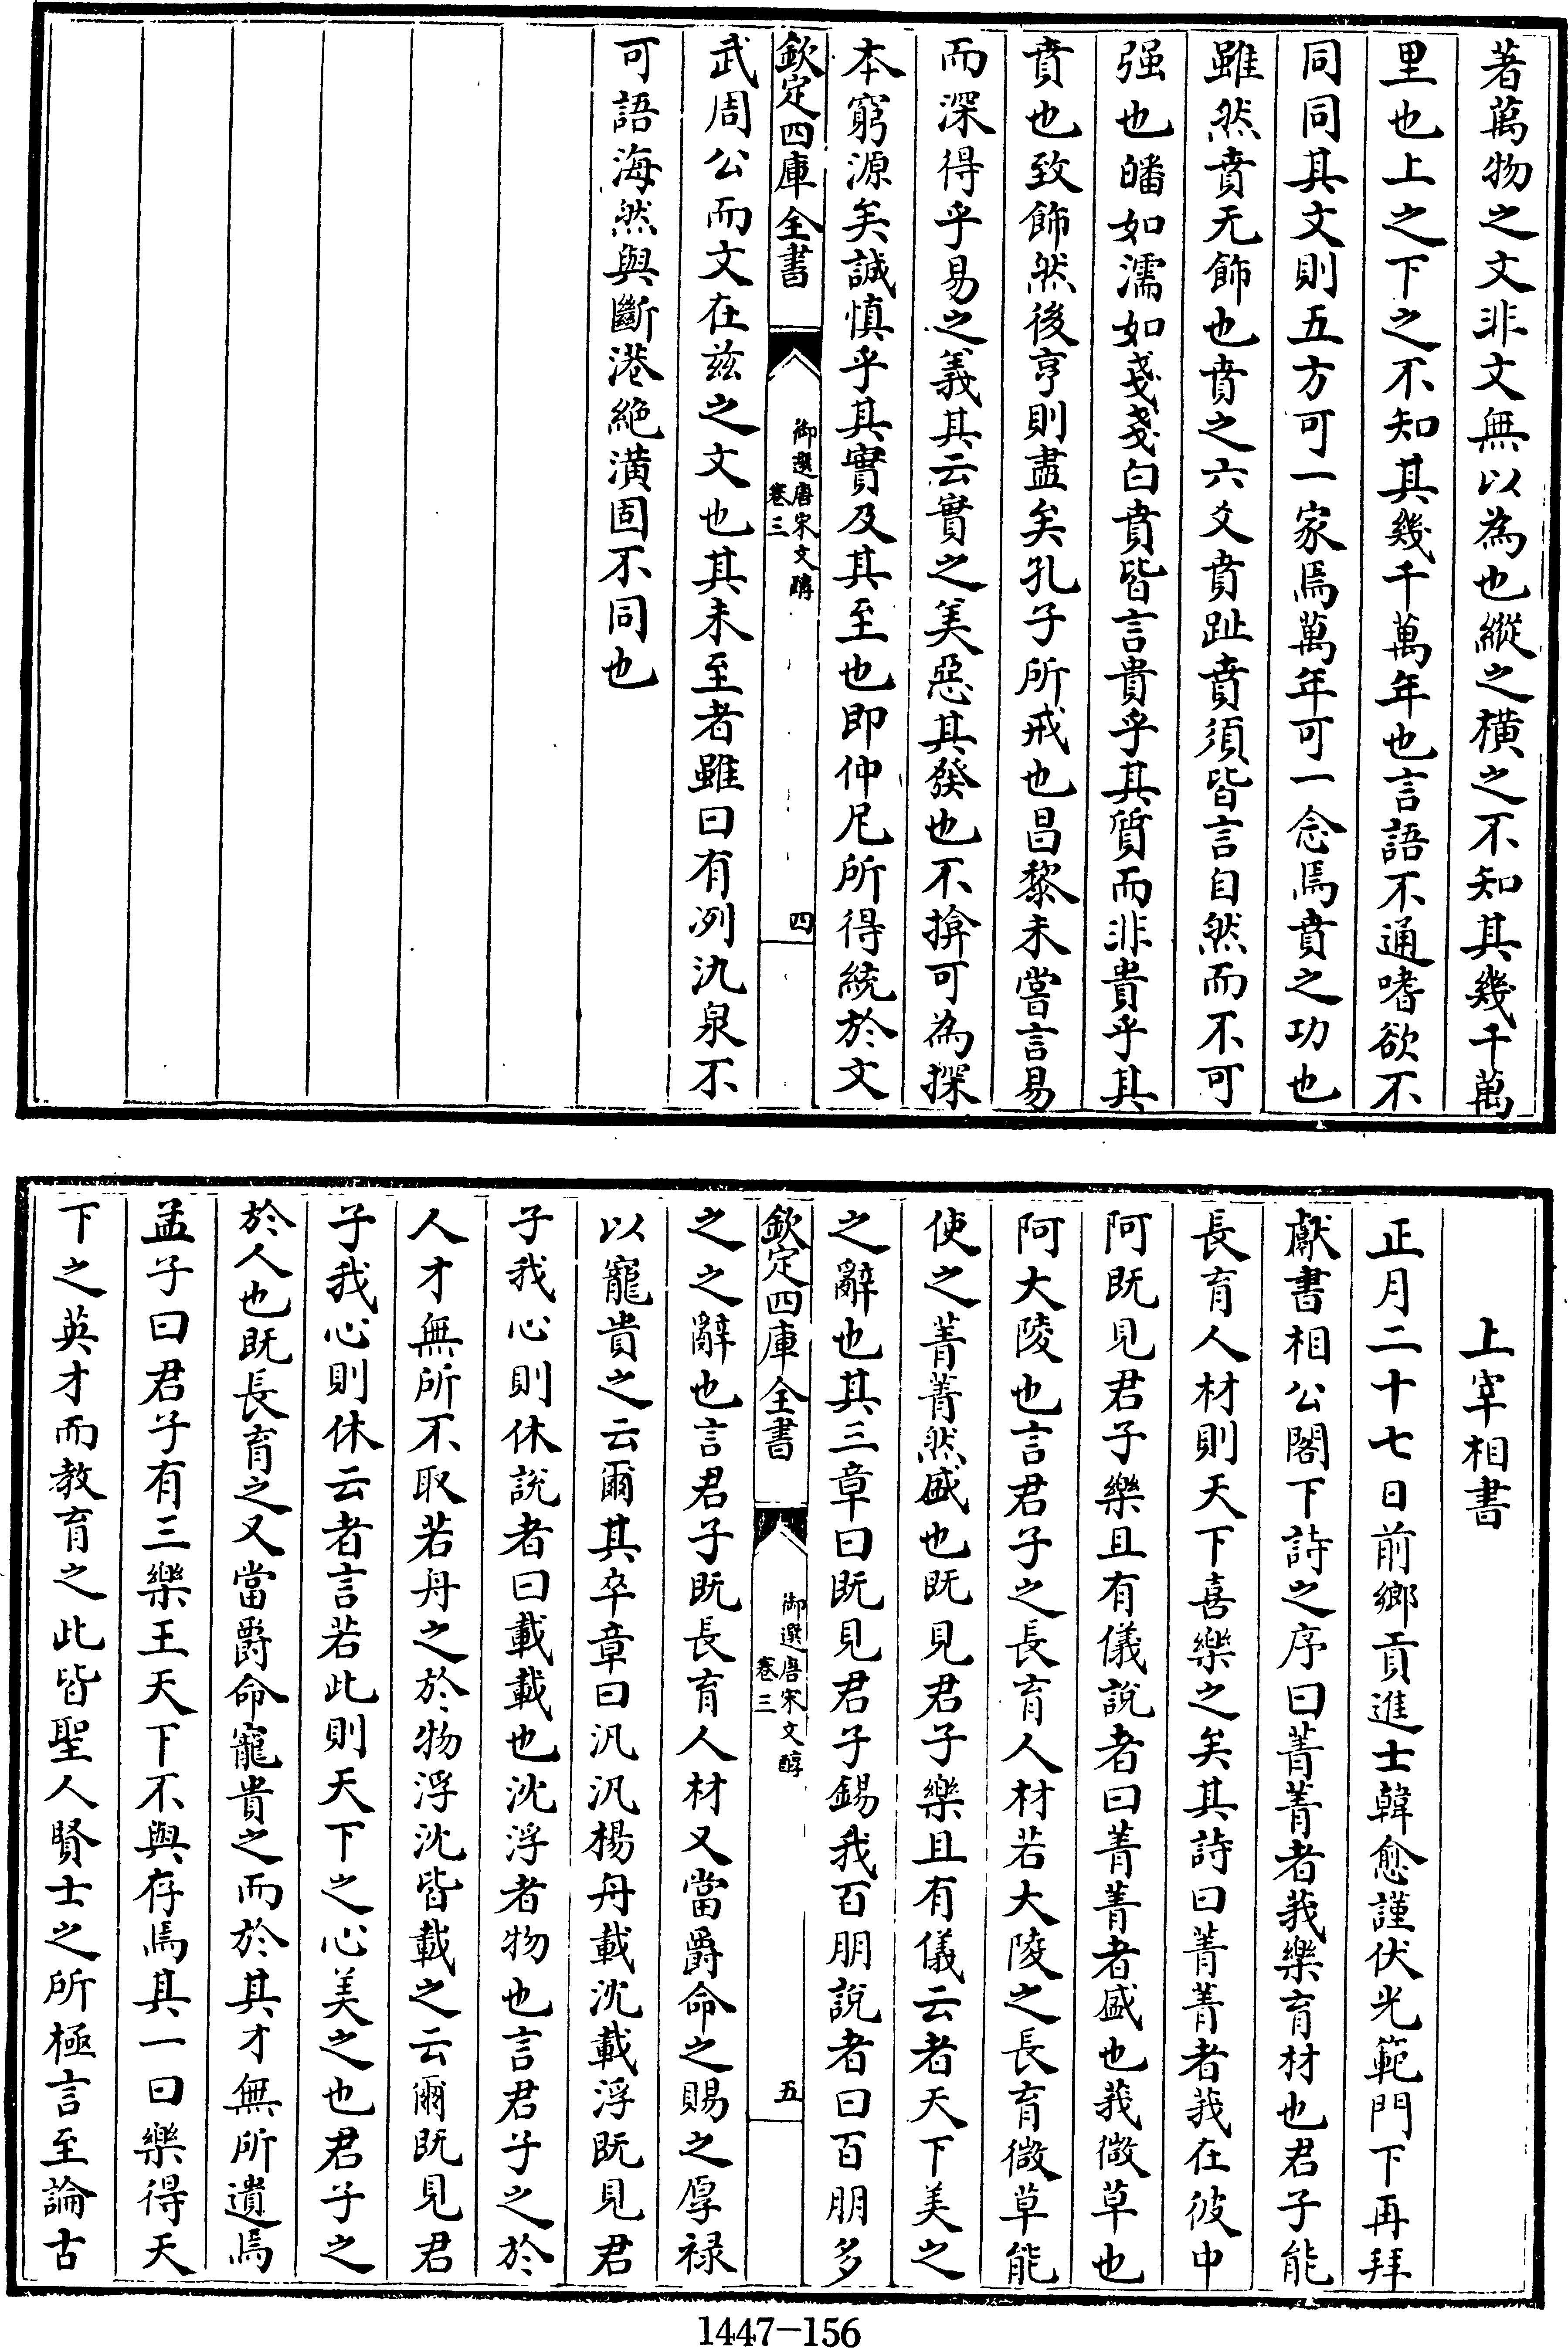 著萬物之文非文無以為也縱之橫之不知其幾千萬
里也上之下之不知其幾千萬年也言語不通嗜欲不
同同其文則五方可一家焉萬年可一念焉賁之功也
雖然賁无飾也賁之六爻賁趾賁須皆言自然而不可
强也皤如濡如戔戔白賁皆言貴乎其質而非貴乎其
賁也致飾然後亨則盡矣孔子所戒也昌黎未嘗言易
而深得乎易之義其云實之美惡其發也不揜可為探
本窮源矣誠慎乎其實及其至也即仲尼所得統於文
欽定四庫全書
御選唐宋文醇
卷三
四
武周公而文在兹之文也其未至者雖曰有冽氿泉不
可語海然與斷港絶潢固不同也
上宰相書
正月二十七日前鄉貢進士韓愈謹伏光範門下再拜
獻書相公閣下詩之序曰菁菁者莪樂育材也君子能
長育人材則天下喜樂之矣其詩曰菁菁者莪在彼中
阿既見君子樂且有儀說者曰菁菁者盛也莪微草也
阿大陵也言君子之長育人材若大陵之長育微草能
使之菁菁然盛也既見君子樂且有儀云者天下美之
之辭也其三章曰既見君子錫我百朋說者曰百朋多
欽定四庫全書
御選唐宋文醇
卷三
五
之之辭也言君子既長育人材又當爵命之賜之厚祿
以寵貴之云爾其卒章曰汎汎楊舟載沈載浮既見君
子我心則休說者曰載載也沈浮者物也言君子之於
人才無所不取若舟之於物浮沈皆載之云爾既見君
子我心則休云者言若此則天下之心美之也君子之
於人也既長育之又當爵命寵貴之而於其才無所遺焉
孟子曰君子有三樂王天下不與存焉其一曰樂得天
下之英才而教育之此皆聖人賢士之所極言至論古
1447-156